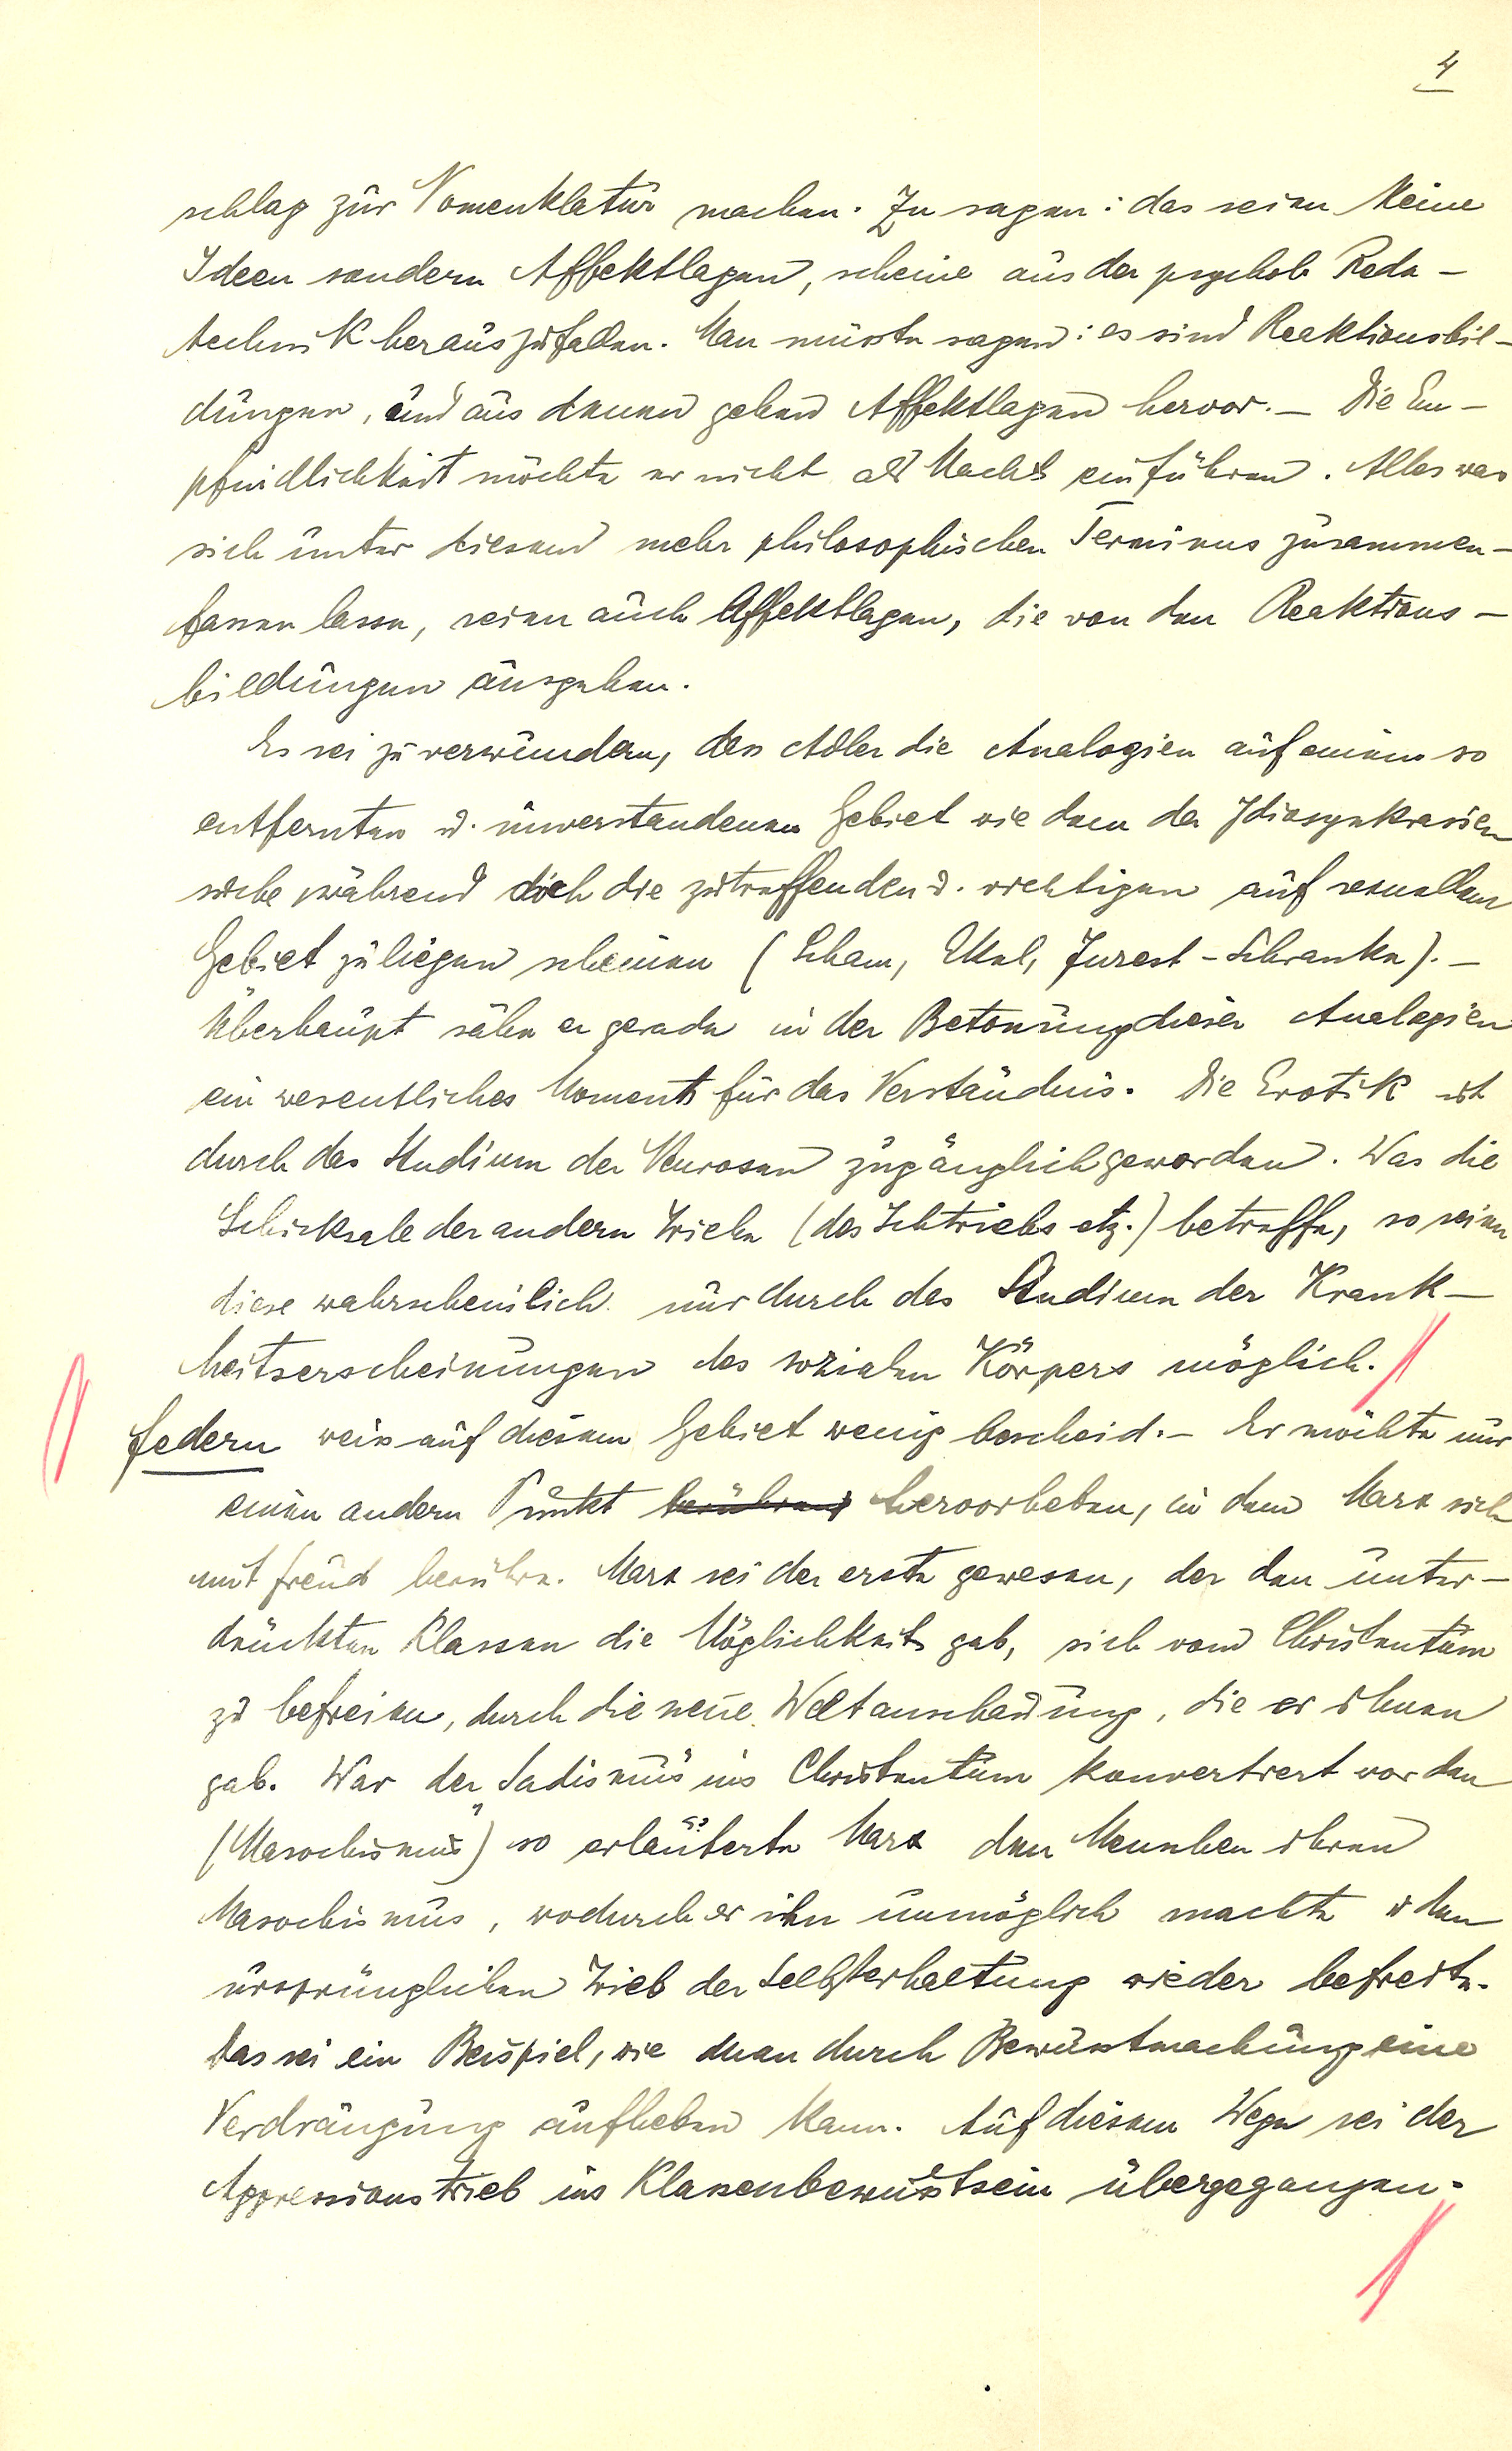 4
schlag zur Nomenklatur machen. Zu sagen: das seien keine
Ideen sondern Affektlagen, scheine aus der psychol. Rede-
technik herauszufallen. Man müsste sagen: es sind Reaktionsbil-
dungen, und aus denen gehen Affektlagen hervor. – Die Em-
pfindlichkeit möchte er nicht als Macht einführen. Alles was
sich unter diesem mehr philosophischen Terminus zusammen-
fassen lasse, seien auch Affektlagen, die von den Reaktions-
bildungen ausgehen.
Es sei zu verwundern, dass Adler die Analogien auf einem so
entfernten u. unverstandenen Gebiet wie dem der Idiosynkrasien
suche während doch die zutreffenden u. wichtigen auf sexuellem
Gebiet zu liegen scheinen (Scham, Ekel, Inzest-Schranke). –
Überhaupt sähe er gerade in der Betonung dieser Analogien
ein wesentliches Moment für das Verständnis. Die Erotik ist
durch das Studium der Neurosen zugänglich geworden. Was die
Schicksale der andern Triebe (des Ichtriebs etz.) betreffe, so seien
diese wahrscheinlich nur durch das Studium der Krank-
heitserscheinungen des sozialen Körpers möglich.
Federn weiss auf diesem Gebiet wenig bescheid. – Er möchte nur
einen andern Punkt berühren hervorheben, in dem Marx sich
mit Freud berühre. Marx sei der erste gewesen, der den unter-
drückten Klassen die Möglichkeit gab, sich vom Christentum
zu befreien, durch die neue Weltanschauung, die er ihnen
gab. War der Sadismus ins Christentum konvertiert worden
(Masochismus) so erläuterte Marx den Menschen ihren
Masochismus, wodurch er ihn unmöglich machte u den
ursprünglichen Trieb der Selbsterhaltung wieder befreite.
Das sei ein Beispiel, wie man durch Bewusstmachung eine
Verdrängung aufheben kann. Auf diesem Wege sei der
Aggressionstrieb ins Klassenbewusstsein übergegangen.